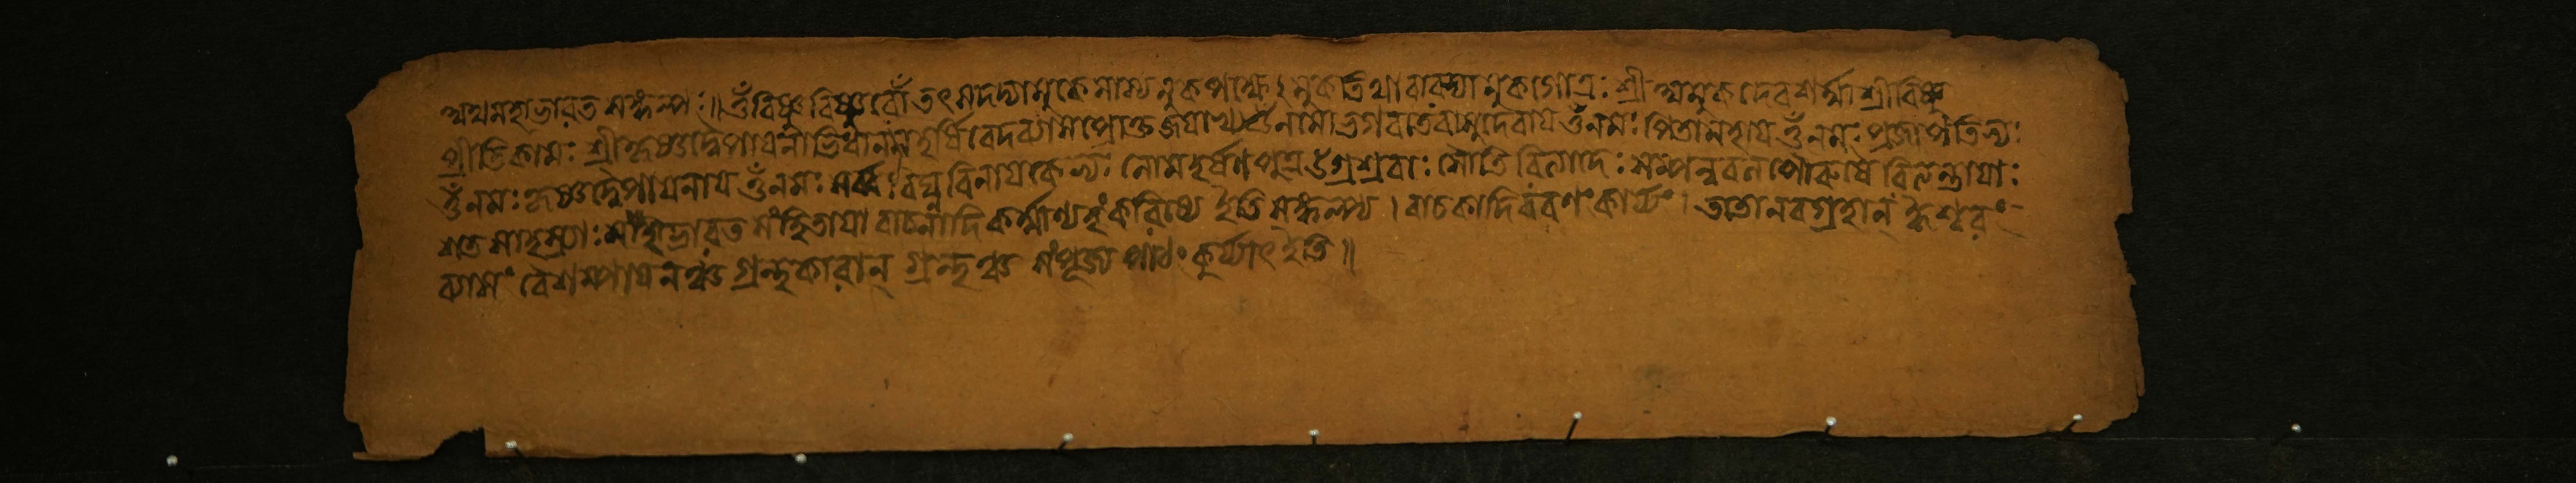 অথ মহাভারত সঙ্কল্পঃ॥ ওঁ বিষ্ণু বিষ্ণুরোঁ তৎসদদ্যামুকে মাস্যমুকপক্ষেঽমুকতিথাবারভ্যামুকগোত্রঃ শ্রী অমুকদেবশর্ম্মা শ্রীবিষ্ণু
প্রীতিকামঃ শ্রীকৃষ্ণদ্বৈপায়নাভিধানমহর্ষি বেদব্যাসপ্রোক্ত জয়াখ্য ওঁ নমো ভগবতে বাসুদেবায় ওঁ নমঃ পিতামহায় ওঁ নমঃ প্রজাপতিভ্যঃ
ওঁ নমঃ কৃষ্ণদ্বৈপায়নায় ওঁ নমঃ সর্ব্ববিঘ্নবিনায়কেভ্যঃ লোমহর্ষণপুত্র উগ্রশ্রবাঃ সৌতি
শতসাহস্র্যাঃ সংহিতায়া বাচনাদি কর্ম্মাণ্যহং করিষ্যে ইতি সঙ্কল্প্য। বাচকাদি বরণং কার্য্যং। ততো নবগ্রহান্
ব্যাসং বৈশম্পায়নঞ্চ গ্রন্থকারান্ গ্রন্থঞ্চ সংপূজ্য পাঠং কুর্য্যাৎ ইতি॥